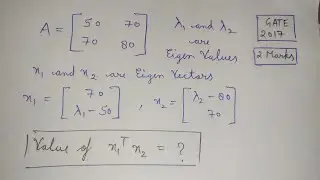 A = [50 70
70 80]
λ₁ and λ₂
are
Eigen Values
GATE
2017
2 Marks
x₁ and x₂ are Eigen Vectors
x₁ = [70
λ₁ - 50] , x₂ = [λ₂ - 80
70]
Value of x₁ᵀ x₂ = ?